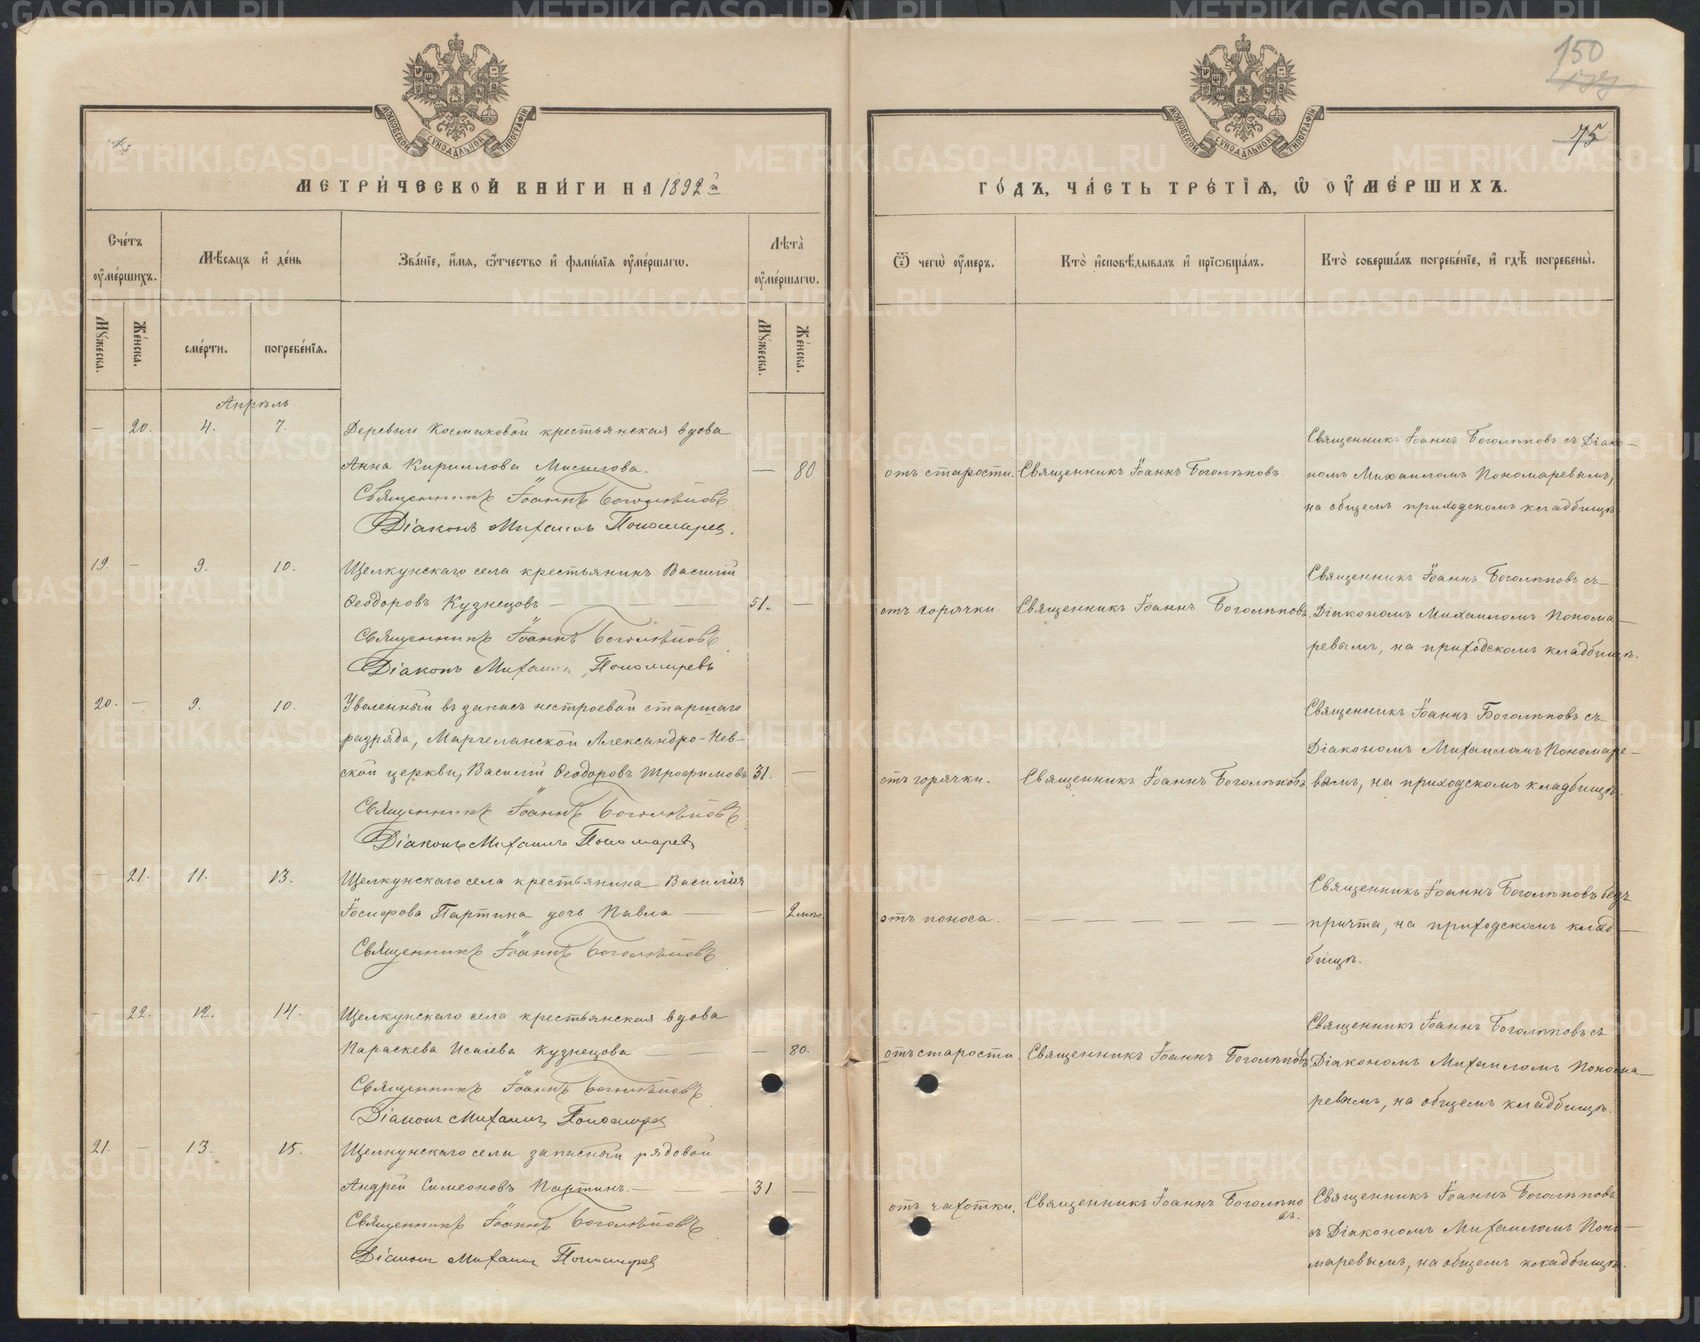 150
75
МОСКОВСКОЙ СУНОДАЛЬНОЙ ТИПОГРАФІИ
МОСКОВСКОЙ СУНОДАЛЬНОЙ ТИПОГРАФІИ
МЕТРИ́ЧЕСКОЙ КНИ́ГИ НА 1892 й
ГО́ДЪ, ЧА́СТЬ ТРЕ́ТІѦ, Ѡ ОУМЕ́РШИХЪ.
Сче́тъ оуме́ршихъ.
Мѣ́сяцъ и де́нь
Зва́ніе, и́мя, ѻ҆́тчество и фами́лія оуме́ршагѡ.
Лѣта̀ оуме́ршагѡ.
Ѿ чегѡ̀ оу́меръ.
Кто̀ исповѣ́дывалъ и пріѡбща́лъ.
Кто̀ соверша́лъ погребе́ніе, и гдѣ̀ погребены̀.
Му́жеска.
Же́нска.
сме́рти.
погребе́нія.
Му́жеска.
Же́нска.
Апрѣль
— 20. 4. 7. Деревни Космаковой крестьянская вдова
Анна Кириллова Мисилова. — 80
Священникъ Іоаннъ Боголѣповъ
Діаконъ Михаилъ Пономарев.
отъ старости. Священникъ Іоаннъ Боголѣповъ.
Священникъ Іоаннъ Боголѣповъ съ Діако-
номъ Михаиломъ Пономаревымъ,
на общемъ приходскомъ кладбищѣ
19. — 9. 10. Щелкунскаго села крестьянинъ Василій
Ѳеодоровъ Кузнецовъ — 51. —
Священникъ Іоаннъ Боголѣповъ
Діаконъ Михаилъ Пономаревъ
отъ горячки Священникъ Іоаннъ Боголѣповъ
Священникъ Іоаннъ Боголѣповъ съ
Діакономъ Михаиломъ Понома-
ревымъ, на приходскомъ кладбищѣ.
20. — 9. 10. Уволенный въ запасъ нестроевой старшаго
разряда, Маргеланской Александро-Нев-
ской церкви, Василій Ѳеодоровъ Трофимовъ 31. —
Священникъ Іоаннъ Боголѣповъ
Діаконъ Михаилъ Пономарев
отъ горячки. Священникъ Іоаннъ Боголѣповъ
Священникъ Іоаннъ Боголѣповъ съ
Діакономъ Михаиломъ Пономаре-
вымъ, на приходскомъ кладбищѣ.
— 21. 11. 13. Щелкунскаго села крестьянина Василія
Іосифова Партина дочь Павла — — 2 мѣс.
Священникъ Іоаннъ Боголѣповъ
отъ поноса. — — —
Священникъ Іоаннъ Боголѣповъ безъ
причта, на приходскомъ клад-
бищѣ.
— 22. 12. 14. Щелкунскаго села крестьянская вдова
Параскева Исаіева Кузнецова — — 80.
Священникъ Іоаннъ Боголѣповъ
Діаконъ Михаилъ Пономарев
отъ старости Священникъ Іоаннъ Боголѣповъ
Священникъ Іоаннъ Боголѣповъ съ
Діакономъ Михаиломъ Понома-
ревымъ, на общемъ кладбищѣ.
21. — 13. 15. Щелкунскаго села запасный рядовой
Андрей Симеоновъ Партинъ. — 31. —
Священникъ Іоаннъ Боголѣповъ
Діаконъ Михаилъ Пономарев
отъ чахотки. Священникъ Іоаннъ Боголѣпо
въ.
Священникъ Іоаннъ Боголѣповъ
съ Діакономъ Михаиломъ Поно-
маревымъ, на общемъ кладбищѣ.
METRIKI.GASO-URAL.RU